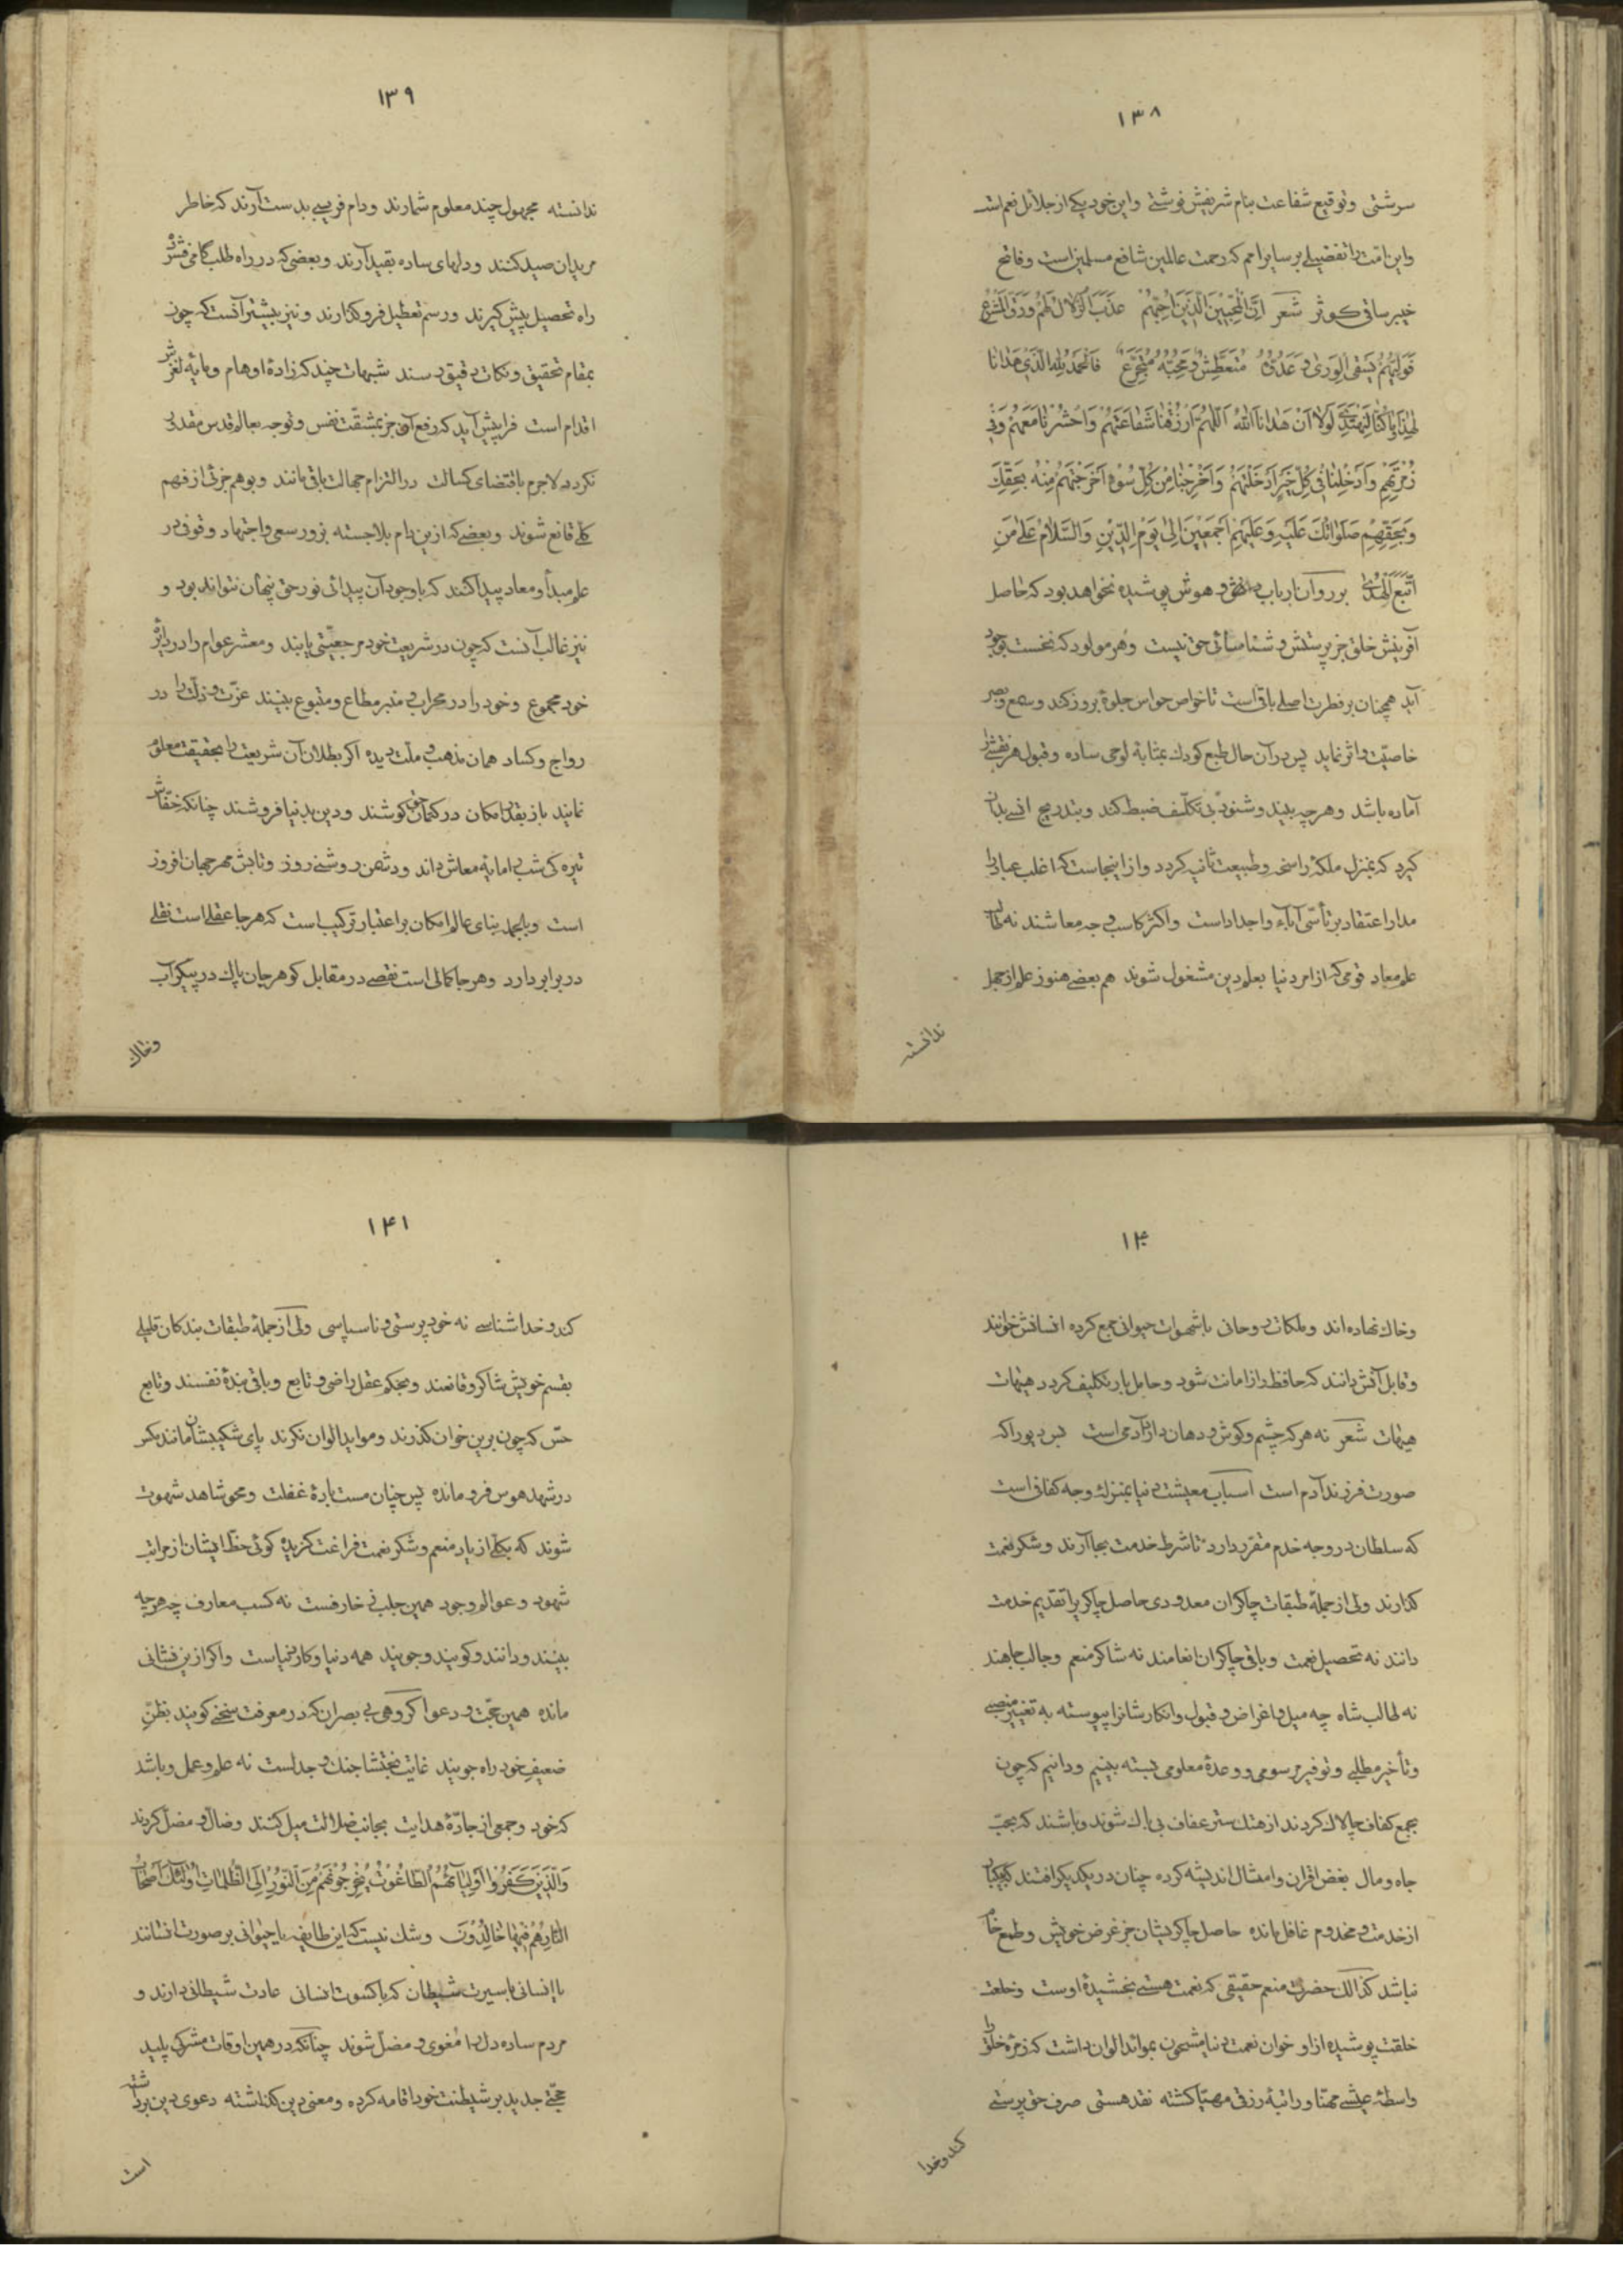 ۱۳۸
سرشتی و توقیع شفاعت بنام شریفش نوشتی و این خود یکی از جلائل نعم است
و این امّت را تفضیلی بر سایر امم که رحمت عالمین شافع مسلمین است و فاتح
خیبر ساقی کوثر شعر اِنَّ الْمُحِبّینَ الَّذینَ اُحِبُّهُمْ عَذُبَ الزُّلالُ لَهُمْ وَ رَقَّ الْمَشْرَعُ
فَوَلِیُّهُمْ یَسْقِی الْوَری وَ عَدُوُّهُ مُتَعَطِّشٌ وَ مُحِبُّهُ مُتَجَرِّعٌ فَالْحَمْدُ لِلّهِ الَّذی هَدانا
لِهذا وَ ما کُنّا لِنَهْتَدِیَ لَوْلا اَنْ هَدانَا اللهُ اَللّهُمَّ ارْزُقْنا شَفاعَتَهُمْ وَ احْشُرْنا مَعَهُمْ وَ فی
زُمْرَتِهِمْ وَ اَدْخِلْنا فی کُلِّ خَیْرٍ اَدْخَلْتَهُمْ وَ اَخْرِجْنا مِنْ کُلِّ سُوْءٍ اَخْرَجْتَهُمْ مِنْهُ بِحَقِّکَ
وَ بِحَقِّهِمْ صَلَواتُکَ عَلَیْهِ وَ عَلَیْهِمْ اَجْمَعینَ اِلی یَوْمِ الدّینِ وَ السَّلامُ عَلی مَنِ
اتَّبَعَ الْهُدی بر روان ارباب دانش و هوش پوشیده نخواهد بود که حاصل
آفرینش خلق جز پرستش و شناسائی حق نیست و هر مولود که نخست بوجود
آید همچنان بر فطرت اصلی باقی است تا خواص حواس جلوهٔ بروز کند و سمع و بصر
خاصیّت و اثر نماید پس در آن حال طبع کودک بمثابه لوحی ساده و قبول هر نقشی را
آماده باشد و هر چه بیند و شنود بی تکلّف ضبط کند و بتدریج انسی بدان
گیرد که بمنزل ملکهٔ راسخه و طبیعت ثانیه گردد و از اینجاست که اغلب عباد را
مدار اعتقاد بر تأسّی آباء و اجداد است و اکثر کاسب وجه معاشند نه طالب
علم معاد قومی که از امر دنیا بعلم دین مشغول شوند هم بعضی هنوز علم از جهل
ندانسته
۱۳۹
ندانسته مجهول چند معلوم شمارند و دام فریبی بدست آرند که خاطر
مریدان صید کنند و دلهای ساده بقید آرند و بعضی که در راه طلب گامی فشرده
راه تحصیل پیش گیرند و رسم تعطیل فرو گذارند و نیز بیشتر آنست که چون
بمقام تحقیق و نکات دقیق رسند شبهات چند که زادهٔ اوهام و مایهٔ لغزش
اقدام است فرا پیش آید که رفع آن جز بمشقّت نفس و توجه بعالم قدس مقدور
نگردد لاجرم باقتضای کسالت در التزام جهالت باقی مانند و بوهم جزئی از فهم
کلی قانع شوند و بعضی که ازین دام بلا جسته بزور سعی و اجتهاد وقوفی در
علم مبدأ و معاد پیدا کنند که با وجود آن پیدائی نور حق پنهان نتواند بود و
نیز غالب آنست که چون در شریعت خود مرجعیّتی یابند و معشر عوام را در دایرهٔ
خود مجموع و خود را در محراب و منبر مطاع و متبوع بینند عزّت و ذلّت را در
رواج و کساد همان مذهب و ملّت دیده اگر بطلان آن شریعت را بحقیقت معلوم
نمایند باز بقدر امکان در کتمان حق کوشند و دین بدنیا فروشند چنانکه خفّاش
تیره کی شب را مایهٔ معاش داند و دشمن روشنی روز و تابش مهر جهان افروز
است و بالجمله بنای عالم امکان بر اعتبار ترکیب است که هر جا عقلی است نقلی
در برابر دارد و هر جا کمالی است نقصی در مقابل گوهر جان پاک در پیکر آب
و خاک
۱۴۰
و خاک نهاده اند و ملکات روحانی با شهوات حیوانی جمع کرده انسانش خوانند
و قابل آنش دانند که حافظ راز امانت شود و حامل بار تکلیف گردد هیهات
هیهات شعر نه هر که چشم و گوش و دهان دارد آدمی است بس دیو را که
صورت فرزند آدم است اسباب معیشت دنیا بمنزلهٔ وجه کفافی است
که سلطان در وجه خدم مقرّر دارد تا شرط خدمت بجا آرند و شکر نعمت
گذارند ولی از جملهٔ طبقات چاکران معدودی حاصل چاکری را تقدیم خدمت
دانند نه تحصیل نعمت و باقی چاکران انعامند نه شاکر منعم و جالب جاهند
نه طالب شاه چه میل و اغراض و قبول و انکار شانرا پیوسته به تغییر منصبی
و تأخیر مطلبی و توفیر مرسومی و وعدهٔ معلومی بسته بینیم و دانیم که چون
بجمع کفاف چالاک گردند از هتک ستر عفاف بی باک شوند و باشند که بحبّ
جاه و مال بغض اقران و امثال اندیشه کرده چنان در یکدیگر افتند که یکباره
از خدمت و مخدوم غافل مانده حاصل چاکریشان جز غرض خویش و طمع خام
نباشد کذالک حضرت منعم حقیقی که نعمت هستی بخشیدهٔ اوست و خلعت
خلقت پوشیده از او خوان نعمت دنیا مشحون بموائد الوان داشت که زمرهٔ خلق را
واسطهٔ عیشی مهنّا و راتبهٔ رزقی مهیّا گشته نقد هستی صرف حق پرستی
کند و خدا
۱۴۱
کند و خدا شناسی نه خود پرستی و ناسپاسی ولی از جملهٔ طبقات بندگان قلیلی
بقسم خویش شاکر و قانعند و بحکم عقل راضی و تابع و باقی بندهٔ نفسند و تابع
حسّ که چون برین خوان گذرند و مواید الوان نگرند پای شکیبشان مانند مگس
در شهد هوس فرو مانده پس چنان مست بادهٔ غفلت و محو شاهد شهوت
شوند که بکلّی از یاد منعم و شکر نعمت فراغت گزیده گوئی حظّ ایشان از مراتب
شهود و عوالم وجود همین جلب زخارفست نه کسب معارف چه هر چه
بینند و دانند و گویند و جویند همه دنیا و کار دنیاست و اگر ازین نشانی
مانده همین حجّت و دعوا گروهی بی بصران که در معرفت سخنی گویند بظنّ
ضعیف خود راه جویند غایت بحثشان جنگ و جدلست نه علم و عمل و باشد
که خود و جمعی از جادّهٔ هدایت بجانب ضلالت میل کنند و ضالّ و مضلّ گردند
وَالَّذینَ کَفَرُوا اَوْلِیآئُهُمُ الطّاغُوتُ یُخْرِجُونَهُمْ مِنَ النُّورِ اِلَی الظُّلُماتِ اُولئِکَ اَصْحابُ
النّارِ هُمْ فیها خالِدُونَ و شک نیست که این طایفه یا حیوانی بر صورت انسانند
یا انسانی با سیرت شیطان که با کسوت انسانی عادت شیطانی دارند و
مردم ساده دل را مُغوی و مضلّ شوند چنانکه در همین اوقات مشرکی پلید
حجّتی جدید بر شیطنت خود اقامه کرده و معنی دین گذاشته دعوی دین برداشته
است